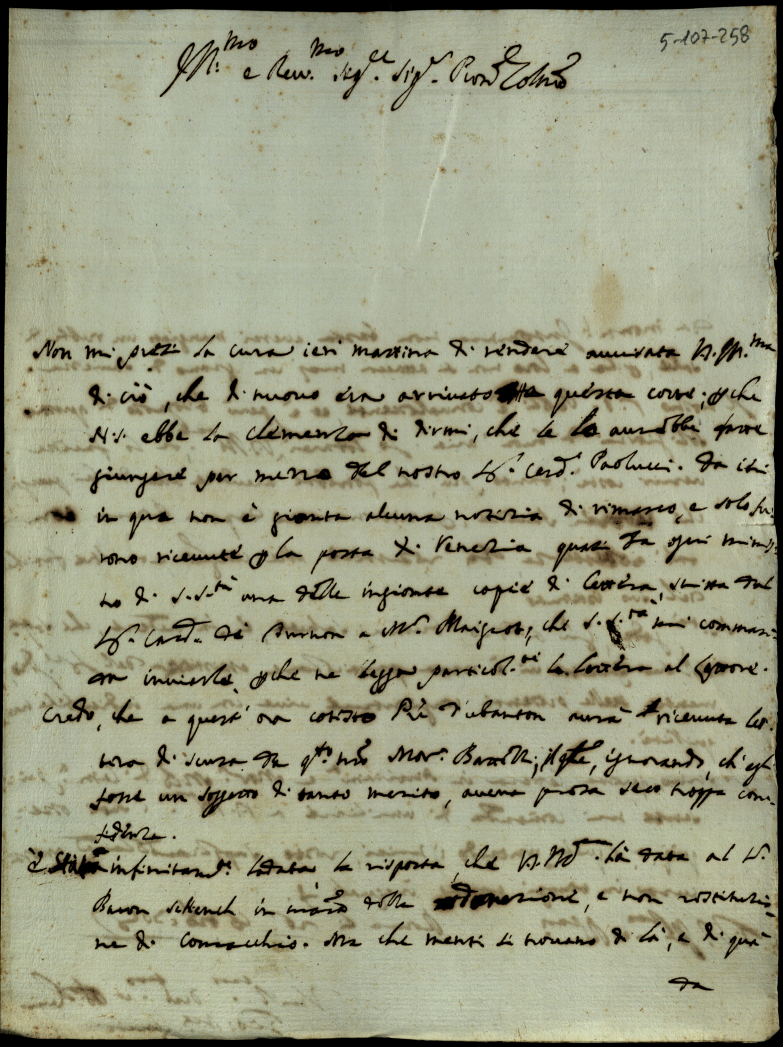 5-107-258
Ill.mo e Rev.mo Sig.re Sig.r Pron.e Colmo
Non mi presi la cura ieri mattina di rendere avvisata V.S. Ill.ma
di ciò, che di nuovo era arrivato a questa corte; che
N.S. ebbe la clemenza di dirmi, che le lo aurebbe fatto
giungere per mezzo del nostro S.r Card.l Paolucci. Da ieri
in qua non è gionta alcuna notizia di rimarco, e solo fu-
rono ricevute la posta di Venezia quasi da ogni minis-
tro di S. S.tà una delle ingionte copie di lettera, scritta dal
S.r Card. de a M.r Maigrot, che S. S.tà mi comman-
da inviarle, che ne legga particol.te la lettera al
Credo, che a quest'ora cotesto P. d'Aubanton aurà ricevuta let-
tera di scusa da q.to Mon.r ; il q.le, ignorando, ch'egli
fosse un soggetto di tanto merito, aveva presa seco troppa con-
fidenza.
È stata infinitam.te lodata la risposta, che V.S. Ill.ma ha data al S.r
Baron in della , e non restituzio-
ne di Comacchio. Ma che menti si trovano di là, e di quà
da